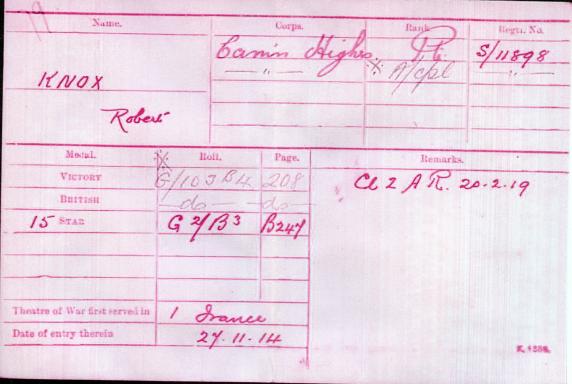 Name. Corps. Rank. Regtl. No.
KNOX Camn Highrs Pte S/11898
Robert —"— ※ A/Cpl "
Medal. ※ Roll. Page. Remarks.
VICTORY G/103B4 208 Cl Z A R. 20-2-19
BRITISH —do— —do—
15 STAR G 2/B3 B247
Theatre of War first served in 1 France
Date of entry therein 27.11.14
K. 1380.